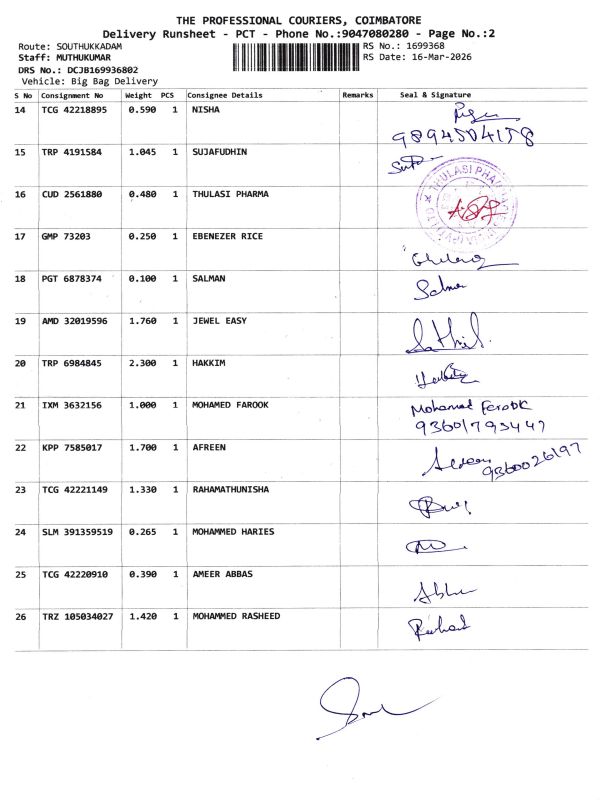 THE PROFESSIONAL COURIERS, COIMBATORE
Delivery Runsheet - PCT - Phone No.:9047080280 - Page No.:2
Route: SOUTHUKKADAM
RS No.: 1699368
Staff: MUTHUKUMAR
RS Date: 16-Mar-2026
DRS No.: DCJB169936802
Vehicle: Big Bag Delivery
S No Consignment No Weight PCS Consignee Details Remarks Seal & Signature
14 TCG 42218895 0.590 1 NISHA
9894504158
15 TRP 4191584 1.045 1 SUJAFUDHIN
16 CUD 2561880 0.480 1 THULASI PHARMA
THULASI PHARMA
17 GMP 73203 0.250 1 EBENEZER RICE
18 PGT 6878374 0.100 1 SALMAN
Salman
19 AMD 32019596 1.760 1 JEWEL EASY
Sathish.
20 TRP 6984845 2.300 1 HAKKIM
21 IXM 3632156 1.000 1 MOHAMED FAROOK
Mohamed Farook
9360179544?
22 KPP 7585017 1.700 1 AFREEN
9360026197
23 TCG 42221149 1.330 1 RAHAMATHUNISHA
24 SLM 391359519 0.265 1 MOHAMMED HARIES
25 TCG 42220910 0.390 1 AMEER ABBAS
26 TRZ 105034027 1.420 1 MOHAMMED RASHEED